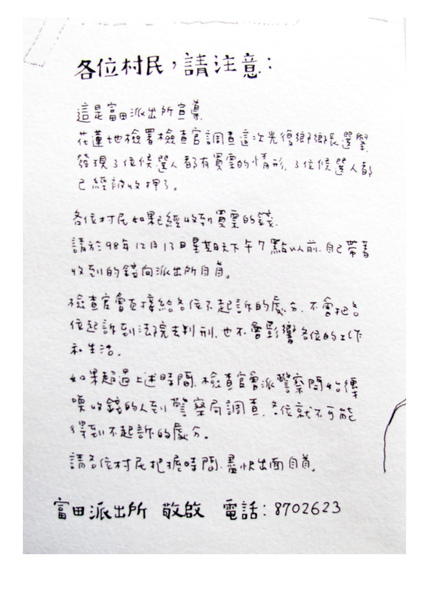 各位村民，請注意：
這是富田派出所宣導.
花蓮地檢署檢查官調查這次光復鄉鄉長選舉.
發現3位候選人都有買票的情形，3位候選人都
已經被收押了。
各位村民如果已經收到買票的錢.
請於98年12月13日星期天下午7點以前.自己帶著
收到的錢向派出所自首。
檢查官會直接給各位不起訴的處分.不會把各
位起訴到法院去判刑.也不會影響各位的工作
和生活。
如果超過上述時間.檢查官會派警察開始傳
喚收錢的人到警察局調查.各位就不可能
得到不起訴的處分。
請各位村民把握時間.盡快出面自首。
富田派出所 敬啟 電話：8702623